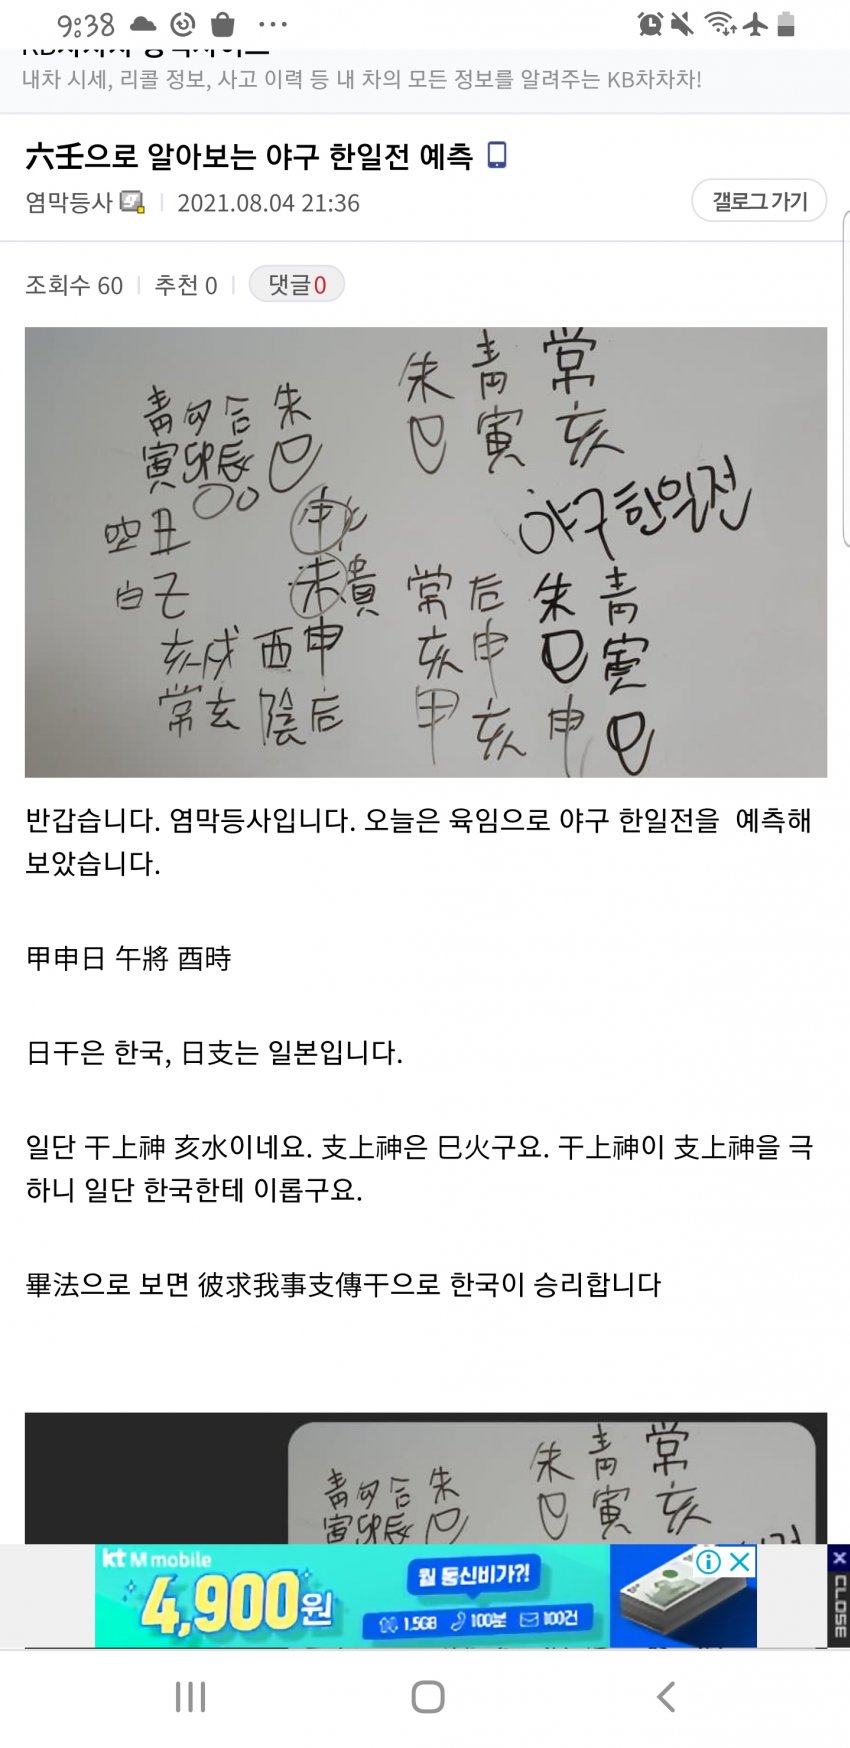 9:38
내차 시세, 리콜 정보, 사고 이력 등 내 차의 모든 정보를 알려주는 KB차차차!
六壬으로 알아보는 야구 한일전 예측
염막등사
2021.08.04 21:36
갤로그 가기
조회수 60
추천 0
댓글0
朱 青 常
巳 寅 亥
青 勾 合 朱
寅 卯 辰 巳
空 丑 申
야구 한일전
白 子 未 貴
亥 戌 酉 申
常 玄 陰 后
常 后 朱 青
亥 申 巳 寅
甲 亥 申 巳
반갑습니다. 염막등사입니다. 오늘은 육임으로 야구 한일전을 예측해
보았습니다.
甲申日 午將 酉時
日干은 한국, 日支는 일본입니다.
일단 干上神 亥水이네요. 支上神은 巳火구요. 干上神이 支上神을 극
하니 일단 한국한테 이롭구요.
畢法으로 보면 彼求我事支傳干으로 한국이 승리합니다
朱 青 常
巳 寅 亥
青 勾 合 朱
寅 卯 辰 巳
kt M mobile
4,900원
월 통신비가?!
1.5GB 100분 100건
X CLOSE